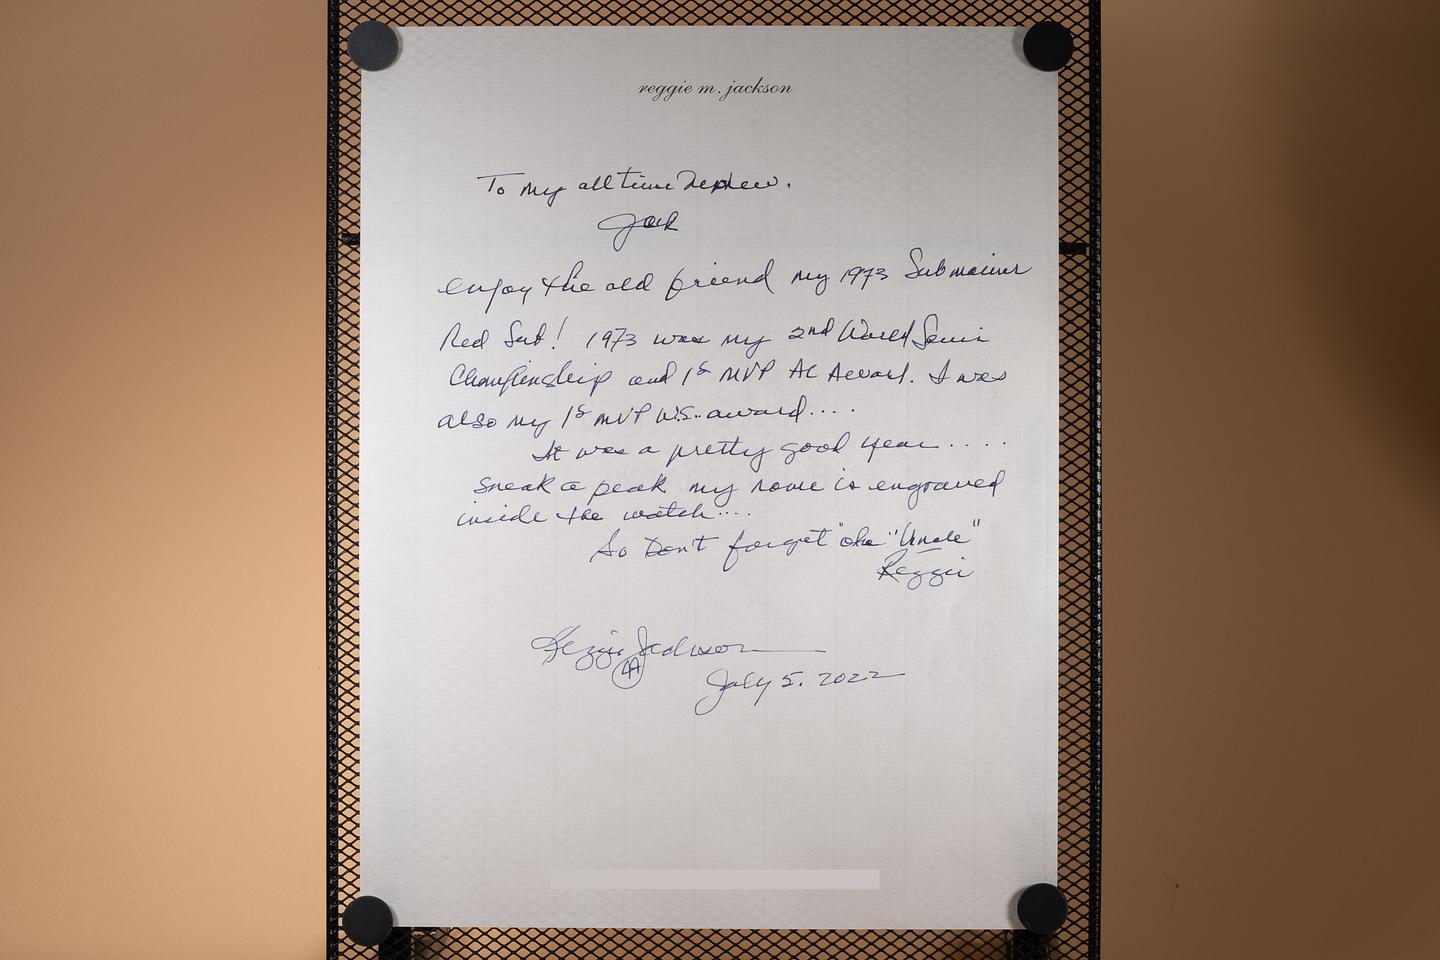 reggie m. jackson
To my all time Nephew.
Jack
enjoy the old friend my 1973 Submariner
Red Sub! 1973 was my 2nd World Series
Championship and 1st MVP AL Award. I was
also my 1st MVP W.S. award....
It was a pretty good year....
sneak a peak my name is engraved
inside the watch....
So Don't forget "Uncle"
Reggie
Reggie Jackson
44
July 5. 2022